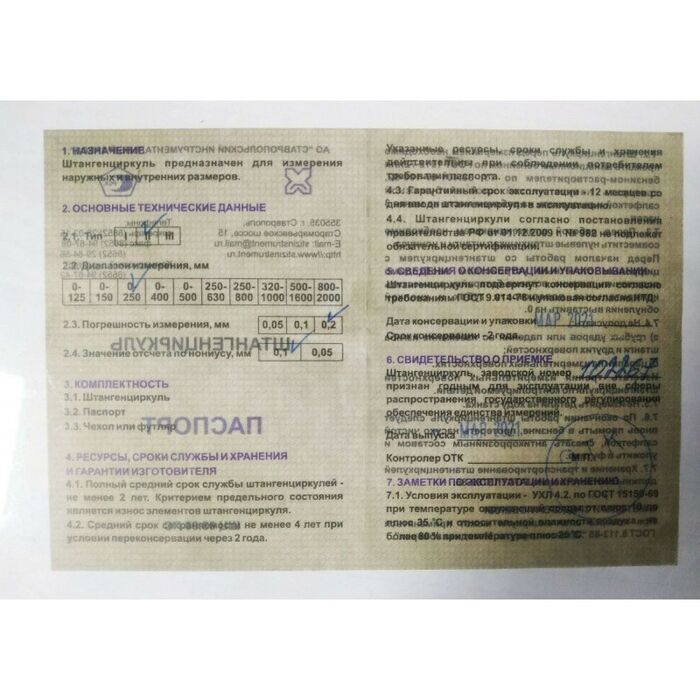 1. НАЗНАЧЕНИЕ
Штангенциркуль предназначен для измерения
наружных и внутренних размеров.
2. ОСНОВНЫЕ ТЕХНИЧЕСКИЕ ДАННЫЕ
2.1. Тип I II III
2.2. Диапазон измерения, мм
0-125 0-150 0-250 0-400 0-500 250-630 250-800 320-1000 500-1600 800-2000
2.3. Погрешность измерения, мм 0,05 0,1 0,2
2.4. Значение отсчета по нониусу, мм 0,1 0,05
3. КОМПЛЕКТНОСТЬ
3.1. Штангенциркуль
3.2. Паспорт
3.3. Чехол или футляр
4. РЕСУРСЫ, СРОКИ СЛУЖБЫ И ХРАНЕНИЯ
И ГАРАНТИИ ИЗГОТОВИТЕЛЯ
4.1. Полный средний срок службы штангенциркулей -
не менее 2 лет. Критерием предельного состояния
является износ элементов штангенциркуля.
4.2. Средний срок сохраняемости не менее 4 лет при
условии переконсервации через 2 года.
Указанные ресурсы, сроки службы и хранения
действительны при соблюдении потребителем
требований паспорта.
4.3. Гарантийный срок эксплуатации - 12 месяцев со
дня ввода штангенциркуля в эксплуатацию.
4.4. Штангенциркули согласно постановления
правительства РФ от 01.12.2009 г. № 982 не подлежат
обязательной сертификации.
5. СВЕДЕНИЯ О КОНСЕРВАЦИИ И УПАКОВЫВАНИИ
Штангенциркуль подвергнут консервации согласно
требованиям ГОСТ 9.014-78 и упакован согласно НТД.
Дата консервации и упаковки МАР 2021
Срок консервации - 2 года.
6. СВИДЕТЕЛЬСТВО О ПРИЕМКЕ
Штангенциркуль, заводской номер
признан годным для эксплуатации вне сферы
распространения государственного регулирования
обеспечения единства измерений.
Дата выпуска МАР 2021
Контролер ОТК М.П.
7. ЗАМЕТКИ ПО ЭКСПЛУАТАЦИИ И ХРАНЕНИЮ
7.1. Условия эксплуатации - УХЛ4.2. по ГОСТ 15150-69
при температуре окружающей среды от плюс 10 до
плюс 35 °С и относительной влажности воздуха не
более 80 % при температуре плюс 25 °С.